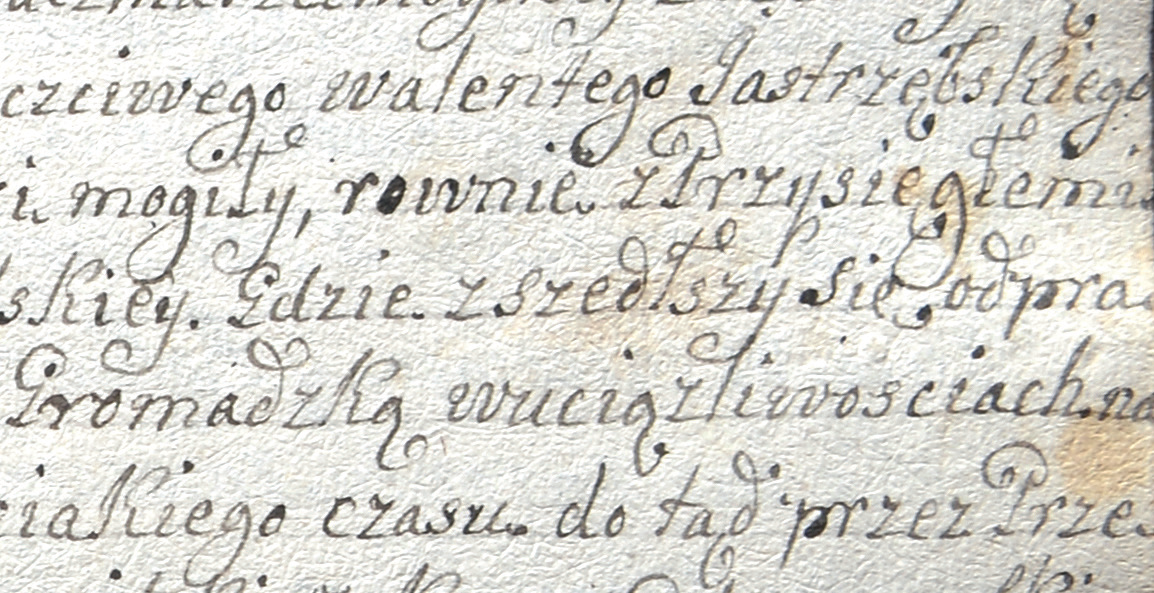 czciwego walentego Jastrzębskiego
ci mogiły, rownie. z Przysięgłemi
skiey. Gdzie. zszedłszy się odpra
Gromadzką wuciązliwosciach na
ciakiego czasu. do tąd przez Prze